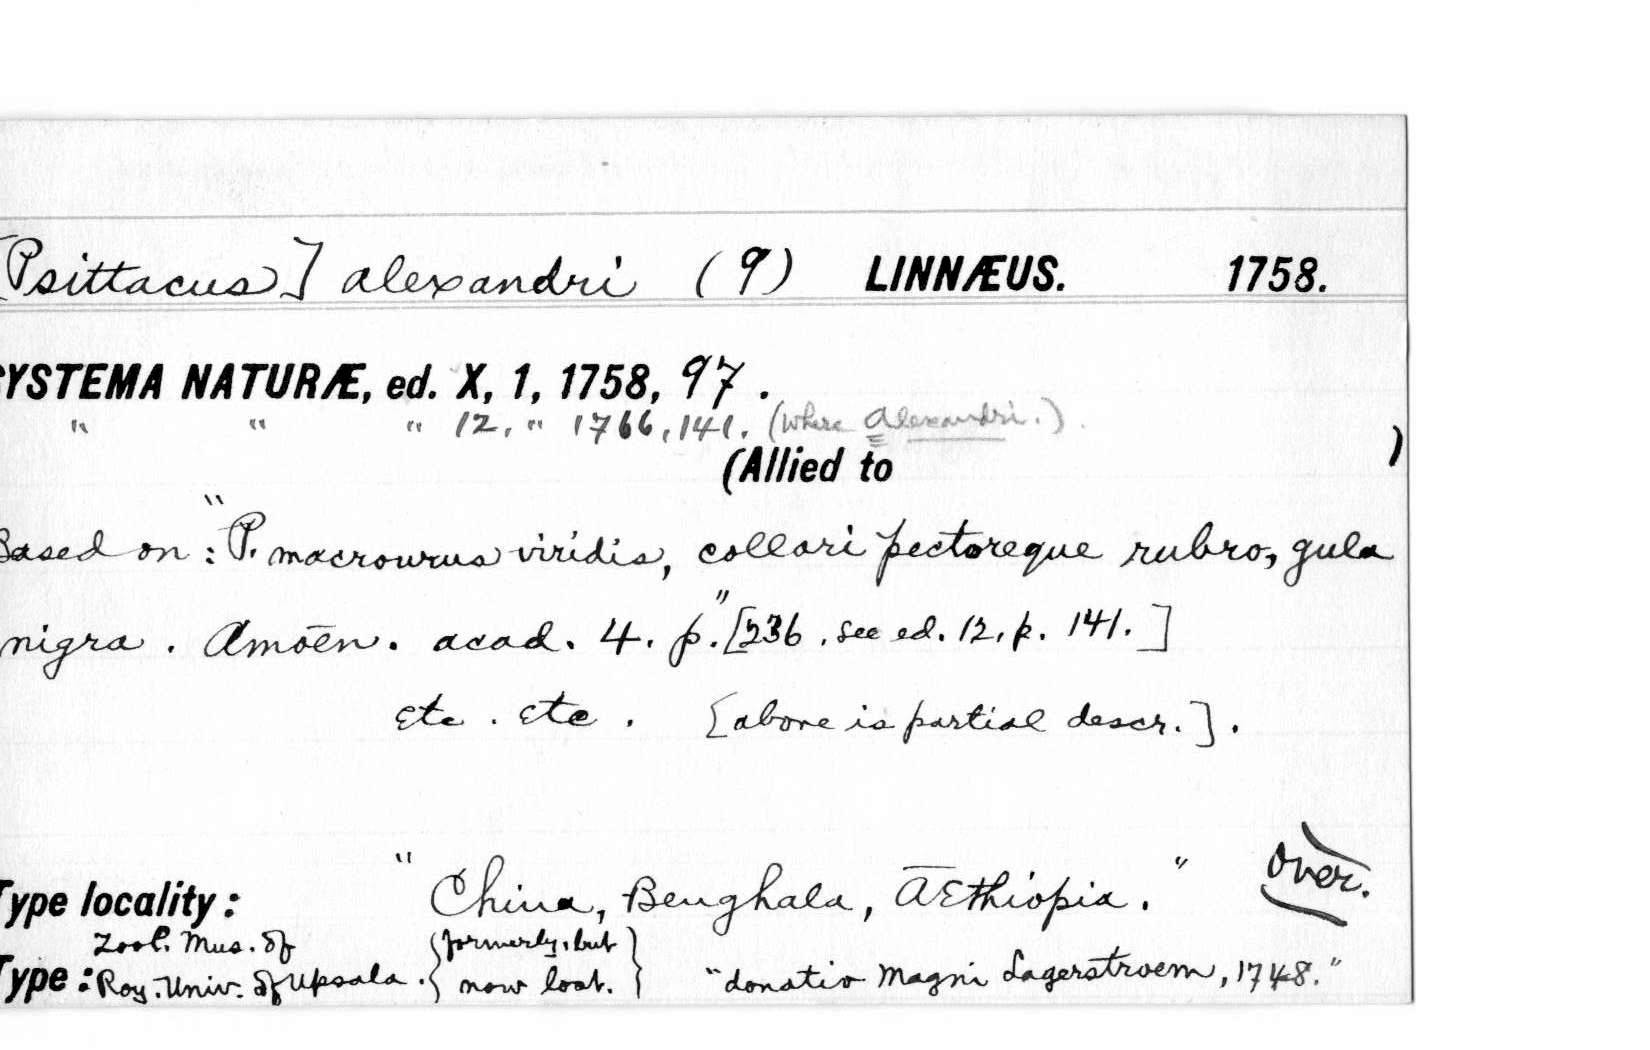 [Psittacus] alexandri (9) LINNÆUS. 1758.
SYSTEMA NATURÆ, ed. X, 1, 1758, 97.
" " " 12, " 1766, 141. (where Alexandri.).
(Allied to )
Based on: "P. macrourus viridis, collari pectoreque rubro, gula
nigra. Amoēn. acad. 4. p." [236, see ed. 12, p. 141.]
etc. etc. [above is partial descr.].
Type locality: "China, Benghala, Æthiopia." over.
Type: Zool. Mus. of Roy. Univ. of Upsala. {formerly, but now lost.} "donatio Magni Lagerstroem, 1748."